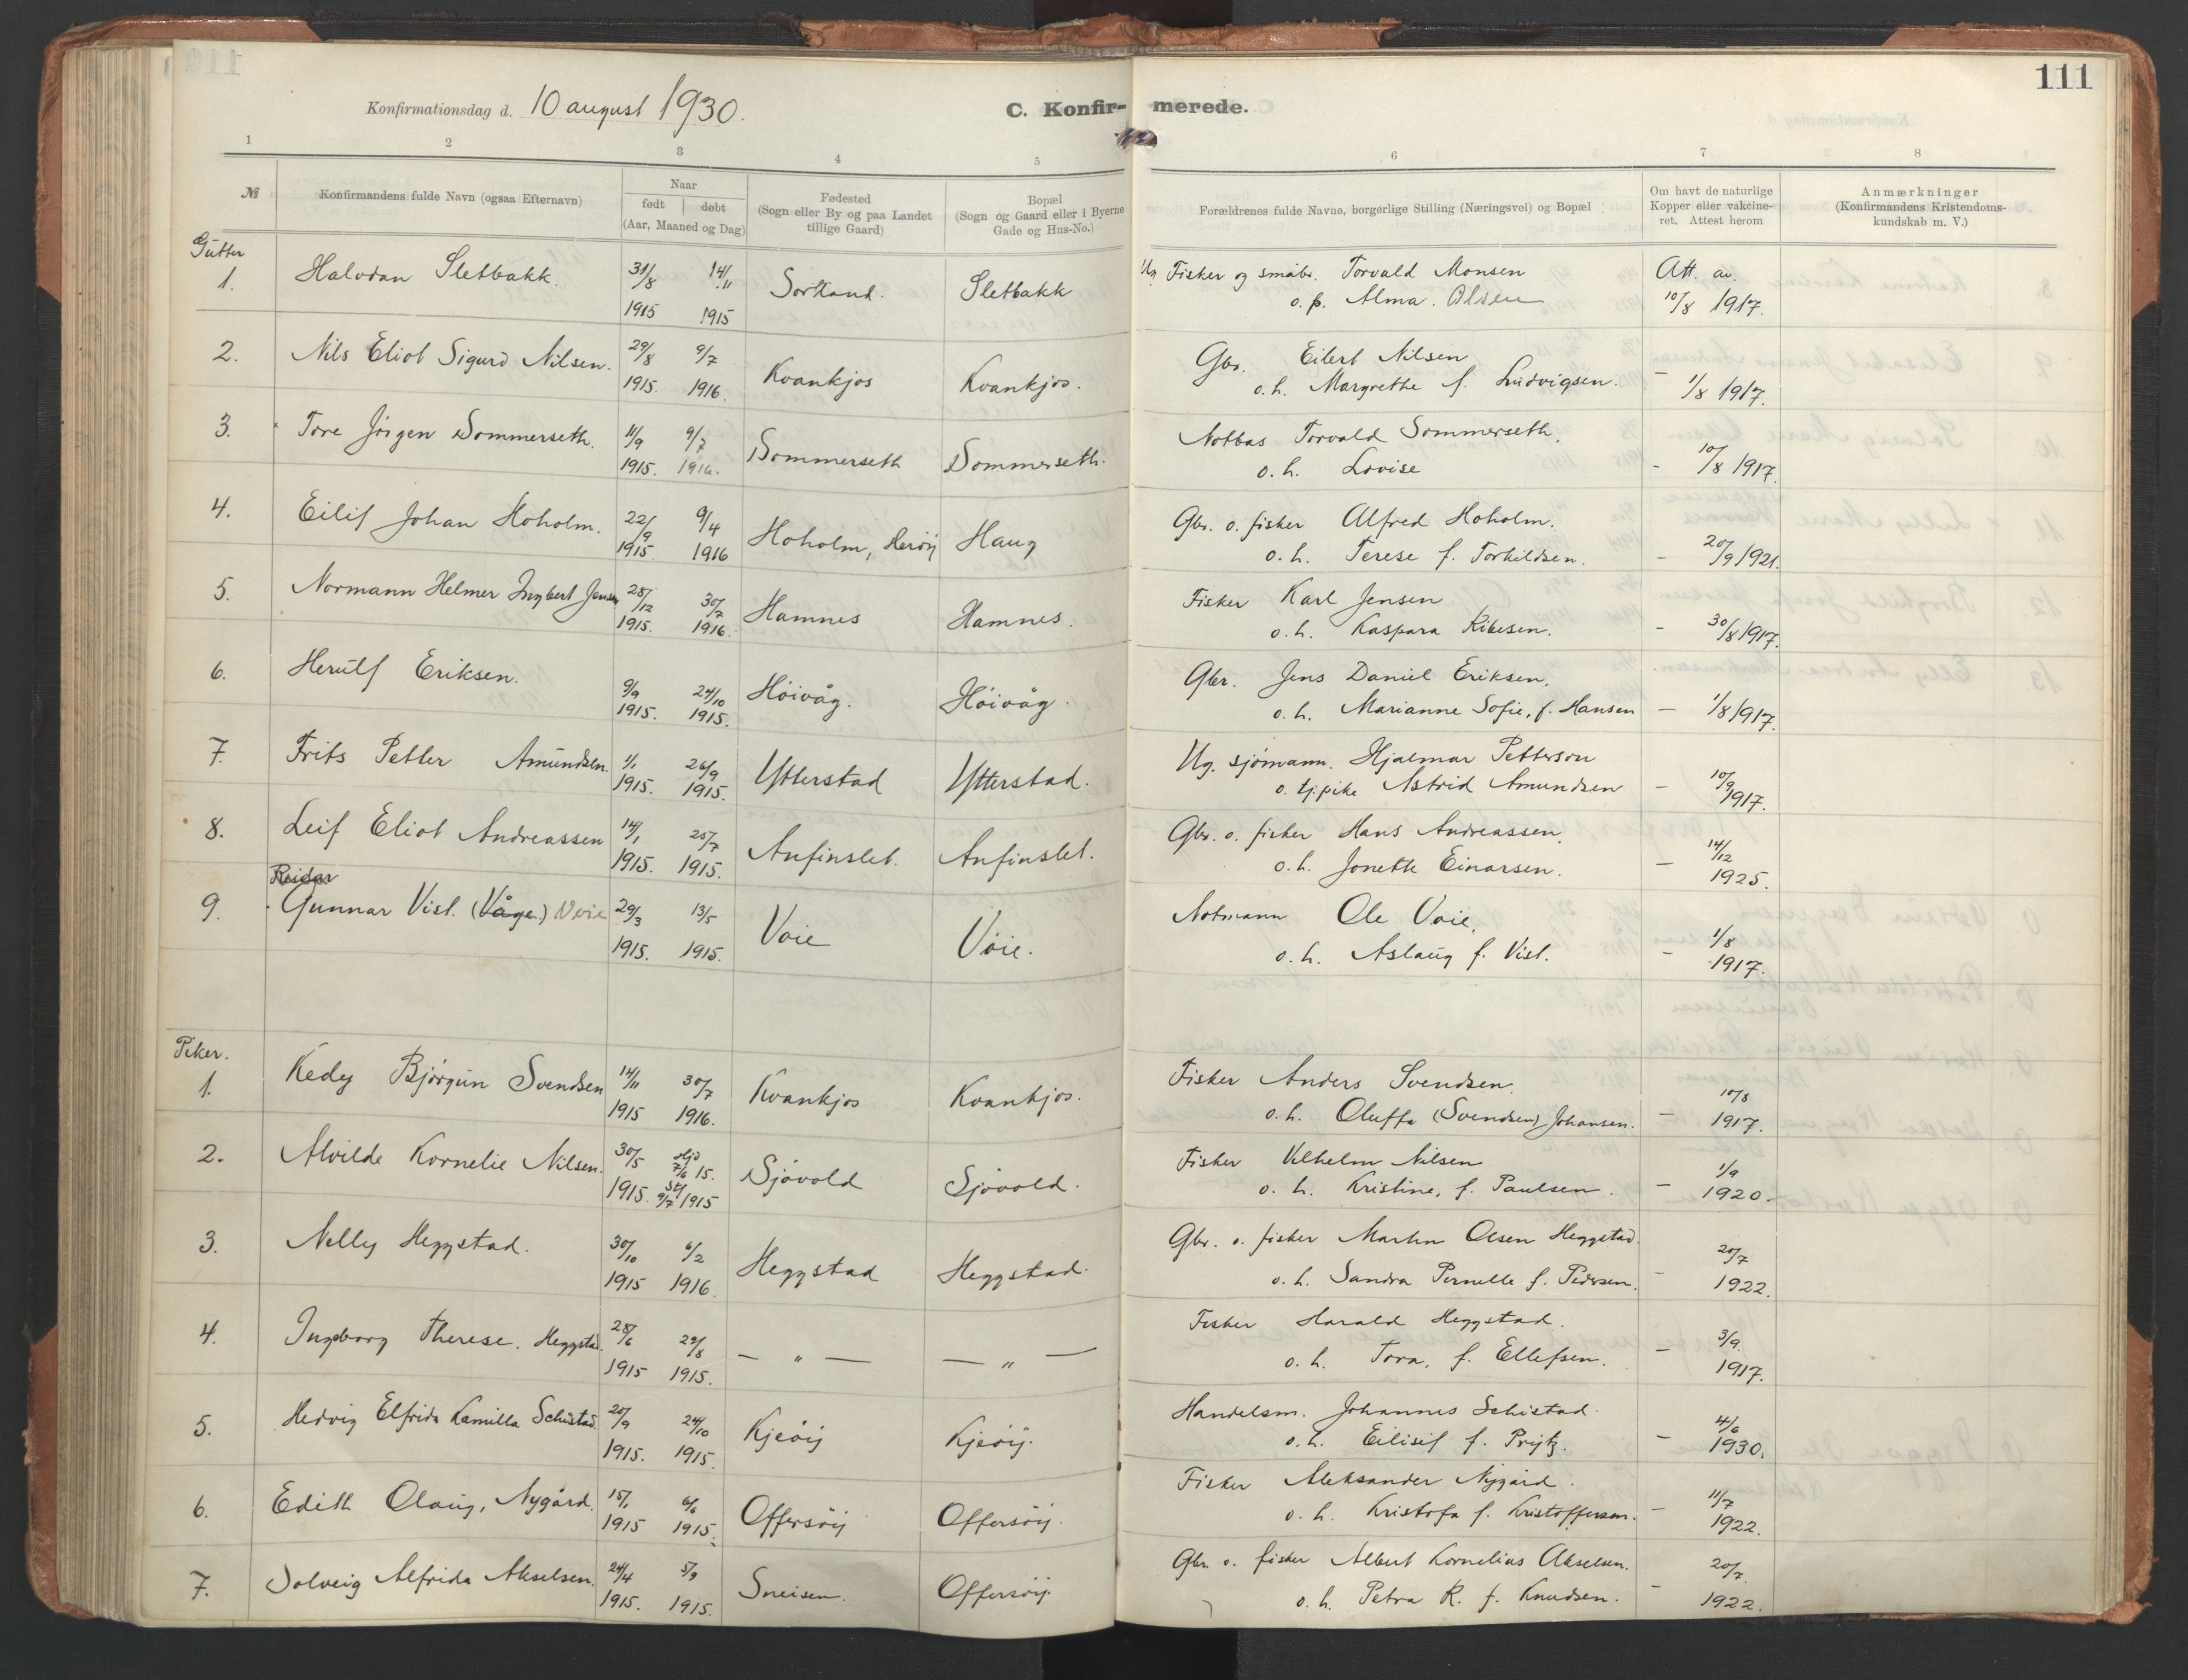 111
Konfirmationsdag d. 10 august 1930.
C. Konfir- merede.
1 2 3 4 5 6 7 8
№
Konfirmandens fulde Navn (ogsaa Efternavn)
Naar
født døbt
(Aar, Maaned og Dag)
Fødested
(Sogn eller By og paa Landet
tillige Gaard)
Bopæl
(Sogn og Gaard eller i Byerne
Gade og Hus-No.)
Forældrenes fulde Navne, borgerlige Stilling (Næringsvei) og Bopæl
Om havt de naturlige
Kopper eller vakcine-
ret. Attest herom
Anmærkninger
(Konfirmandens Kristendoms-
kundskab m. V.)
Gutter
1. Halvdan Sletbakk. 31/8 14/11 Sortland. Sletbakk Ug. Fisker og småbr. Torvald Monsen Att. av.
1915 1915 o. p. Alma. Olsen 10/8 1917.
2. Nils Eliot Sigurd Nilsen. 29/8 9/7 Kvankjos Kvankjos. Gbr. Eilert Nilsen
1915. 1916. o. h. Margrethe f. Ludvigsen. – 1/8 1917.
3. Tore Jörgen Sommerseth. 11/9 9/7 Sommerseth Sommerseth. Notbas Torvald Sommerseth.
1915. 1916. o. h. Lovise – 10/8 1917.
4. Eilif Johan Hoholm. 22/9 9/4 Hoholm, Heröy Haug Gbr. o. fisker Alfred Hoholm.
1915. 1916 o. h. Terese f. Torkildsen. – 20/9 1921.
5. Normann Helmer Ingbert Jensen 28/12 30/7 Hamnes Hamnes. Fisker Karl Jensen
1915. 1916. o. h. Kaspara Ribesen. – 30/8 1917.
6. Herulf Eriksen. 9/9 24/10 Höivåg. Höivåg. Gbr. Jens Daniel Eriksen,
1915. 1915. o. h. Marianne Sofie, f. Hansen – 1/8 1917.
7. Frits Petter Amundsen. 1/1 26/9 Ytterstad Ytterstad. Ug. sjömann. Hjalmar Petterson
1915. 1915. o. tj.pike Astrid Amundsen – 10/9 1917.
8. Leif Eliot Andreassen 14/1 25/7 Anfinslet. Anfinslet. Gbr. o. fisker Hans Andreassen.
1915. 1915. o. h. Jonette Einarsen. – 14/12 1925.
Reidar
9. Gunnar Vist. (Våge.) Voie 29/3 13/5 Voie Vöie. Notmann Ole Voie,
1915. 1915. o. h. Aslaug f. Vist. – 1/8 1917.
Piker.
1. Kedy Björgun Svendsen 14/11 30/7 Kvankjos Kvankjos. Fisker Anders Svendsen.
1915 1916. o. h. Oluffa (Svendsen) Johansen. – 10/8 1917.
2. Alvilde Kornelie Nilsen. 30/5 hjd 7/6 15. Sjövold Sjövold. Fisker Vilhelm Nilsen
1915. st/ 9/7 1915 o. h. Kristine, f. Paulsen. – 1/9 1920.
3. Nelly Heggstad. 30/10 6/2 Heggstad Heggstad. Gbr. o. fisker Martin Olsen Heggstad.
1915 1916. o. h. Sandra Pernelle f. Pedersen. – 20/7 1922.
4. Ingeborg Therese. Heggstad. 28/6 29/8 — „ — — „ — Fisker Harald Heggstad.
1915 1915. o. h. Tora, f. Ellefsen. – 3/9. 1917.
5. Hedvig Elfrida Kamilla Schistad. 20/9 24/10 Kjeöy Kjeöy. Handelsm. Johannes Schistad.
1915. 1915. o. h. Eilisif f. Prytz. – 4/6 1930.
6. Edith Olaug, Nygård. 15/1 6/6 Offersöy Offersöy. Fisker Aleksander Nygård.
1915 1915. o. h. Kristofa f. Kristoffersen. – 11/7 1922.
7. Solveig Alfrida Akselsen. 24/4 5/9 Sneisen. Offersöy. Gbr. o. fisker Albert Kornelius Akselsen.
1915. 1915. o. h. Petra R. f. Knudsen. – 20/7. 1922.